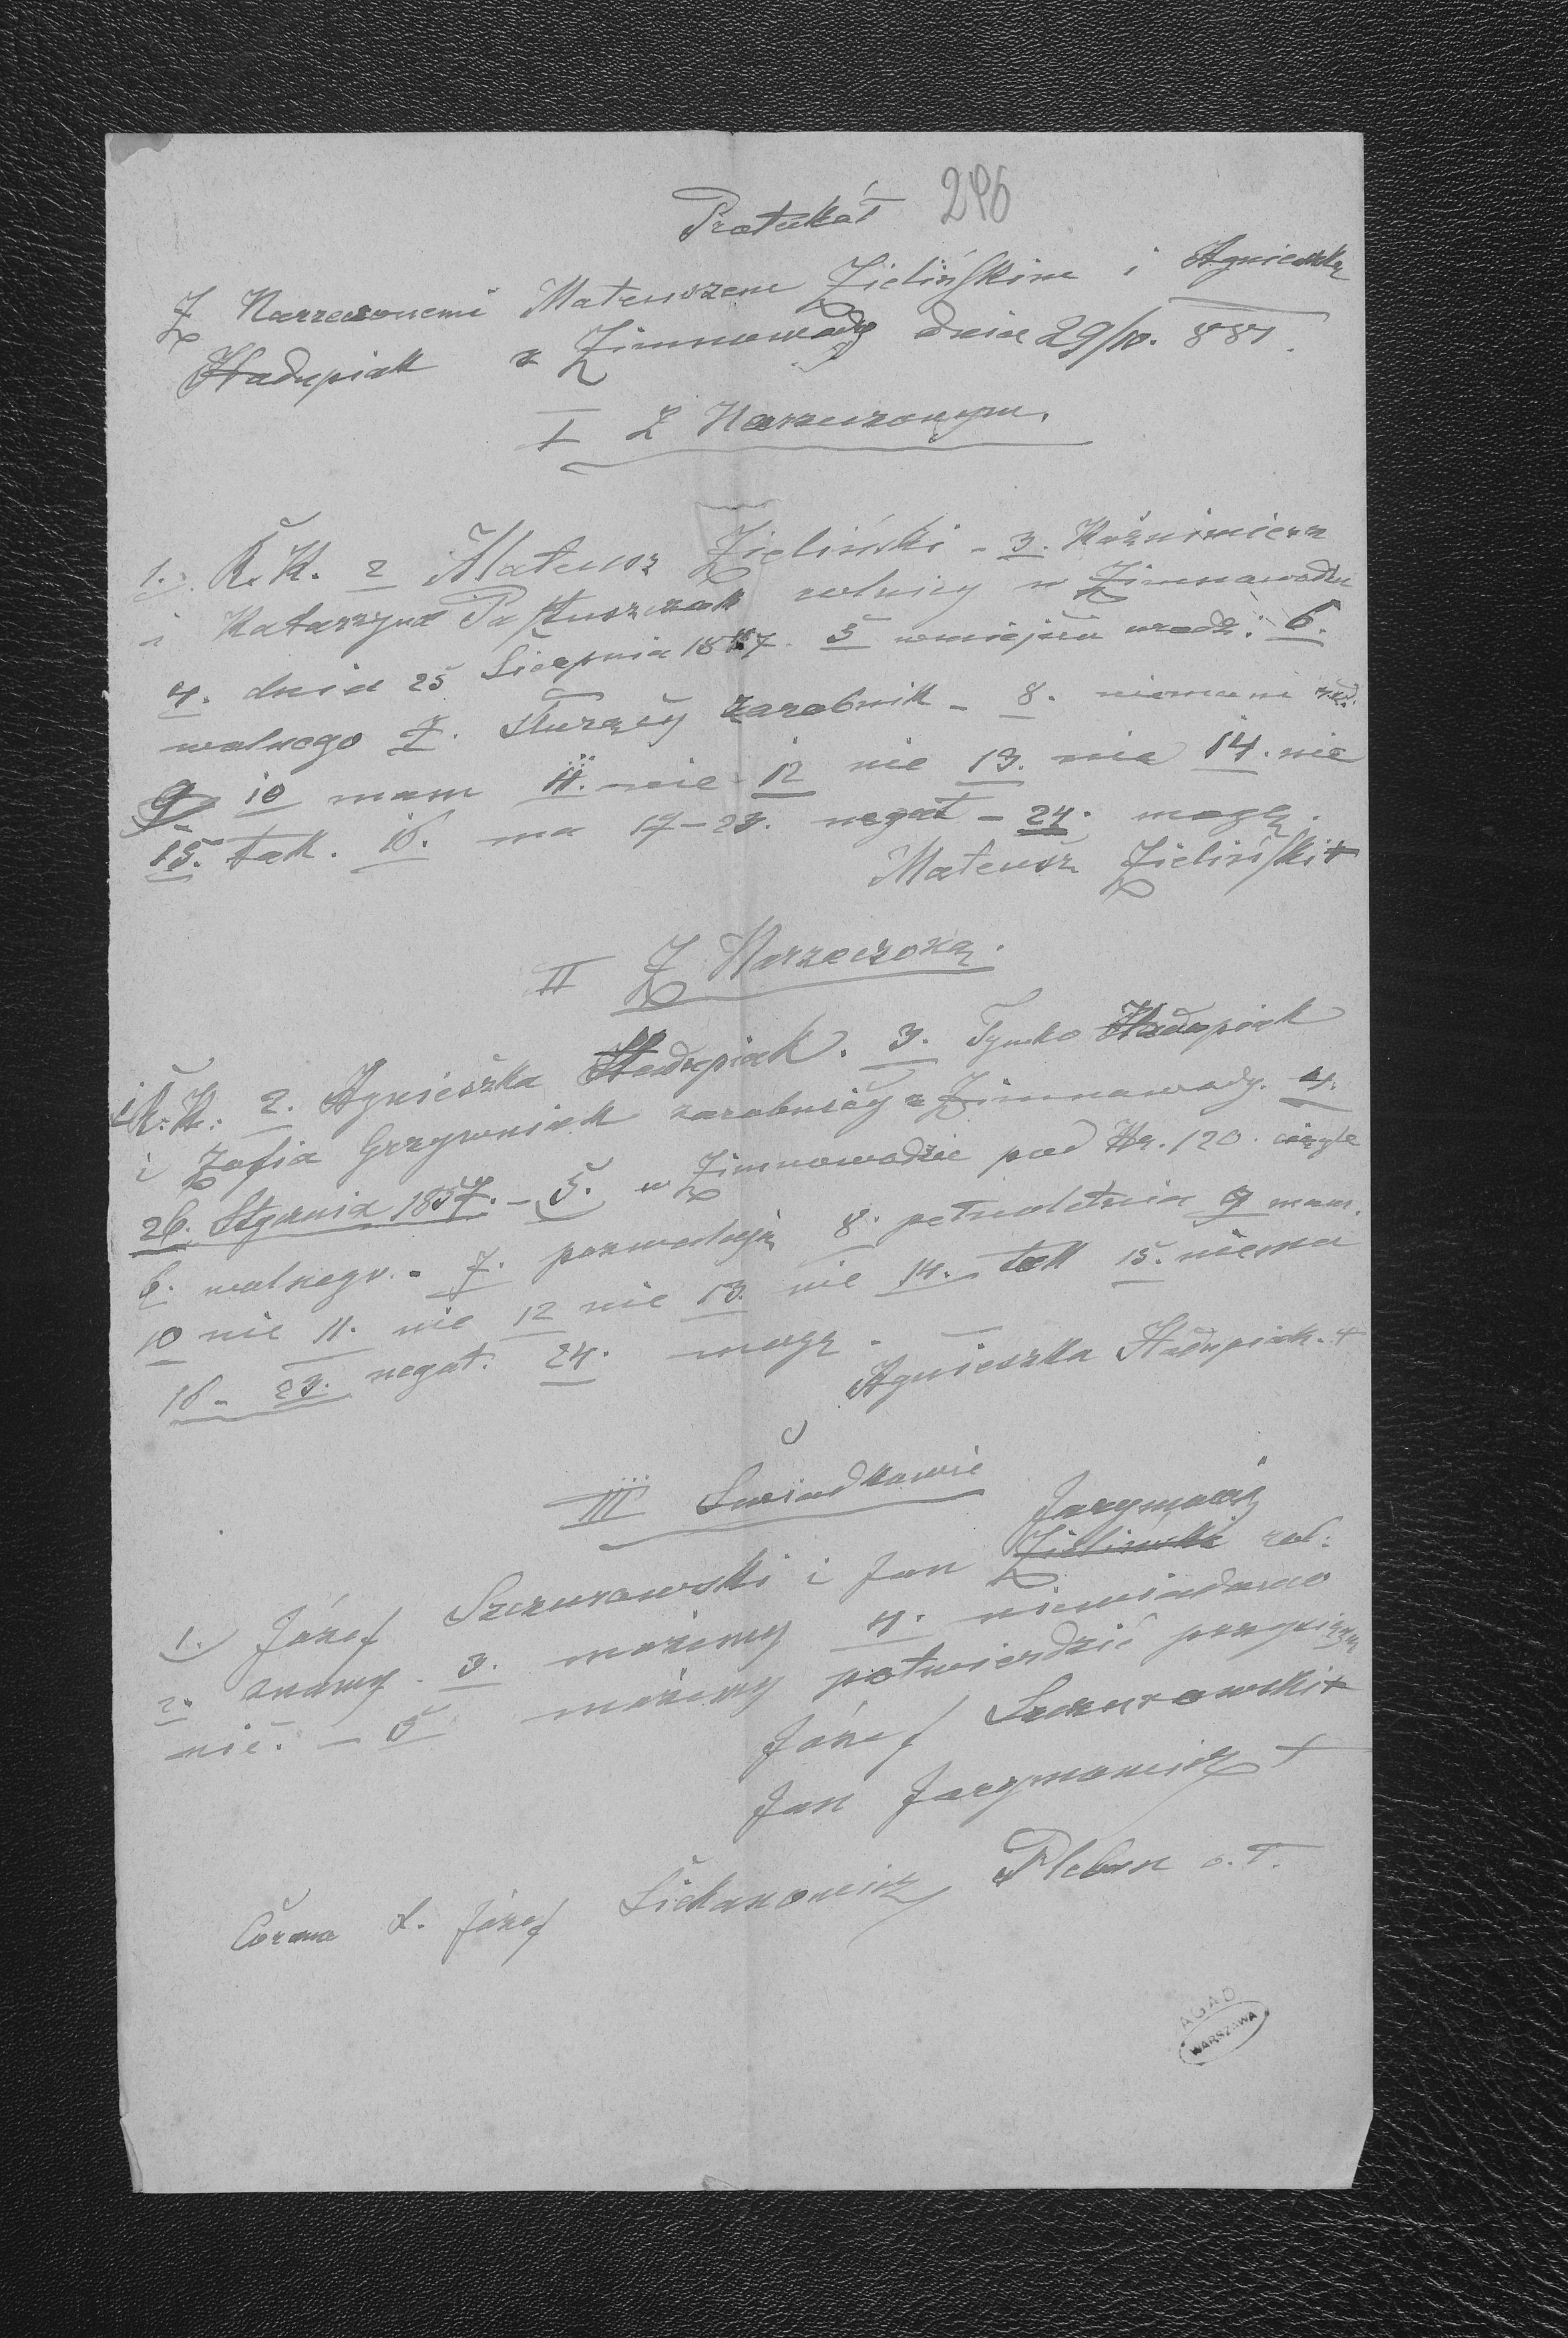 Protukół 296
Z Narzeczonemi Mateuszem Zielińskim i Agnieszką
Hadupiak z Zimnowody dnia 29/10. 881.
I Z Narzeczonym.
1. R. K. 2 Mateusz Zieliński - 3. Kaźmimierz
i Katarzyna Pastuszczak rolnicy w Zimnawodzie
4. dnia 25 Sierpnia 1857. 5 wmiejscu urodz: 6.
walnego 7. Służący zarobnik - 8. niemam
9 10 mam 11. nie 12 nie 13. nie 14. nie
15. tak. 16. ma 17-23. negat - 24. mogę.
Mateusz Zieliński +
II Z Narzeczoną.
1 R. K. 2. Agnieszka Hadupiak. 3. Tymko Hadupiak
i Zofia Grzywniak zarobnicy z Zimnawody. 4.
26. Stycznia 1857. - 5. w Zimnowodzie pod Nr. 120. ciągle
6. walnego. - 7. pozwalają 8. pełnoletnia 9 mam.
10 nie 11. nie 12 nie 13. nie 14. tak 15. niema
16 - 23. negat. 24. mogę -
Agnieszka Hadupiak. +
III Swiadkowie
Jarymowicz
1. Józef Szczurowski i Jan Zieliński rol:
2. znamy. 3. możemy 4. niewiadomo
nic. - 5 możemy potwierdzić przysięgą
Józef Szczurowski +
Jan Jarymowicz +
Coram X. Józef Pleban o. ł.
AGAD
WARSZAWA